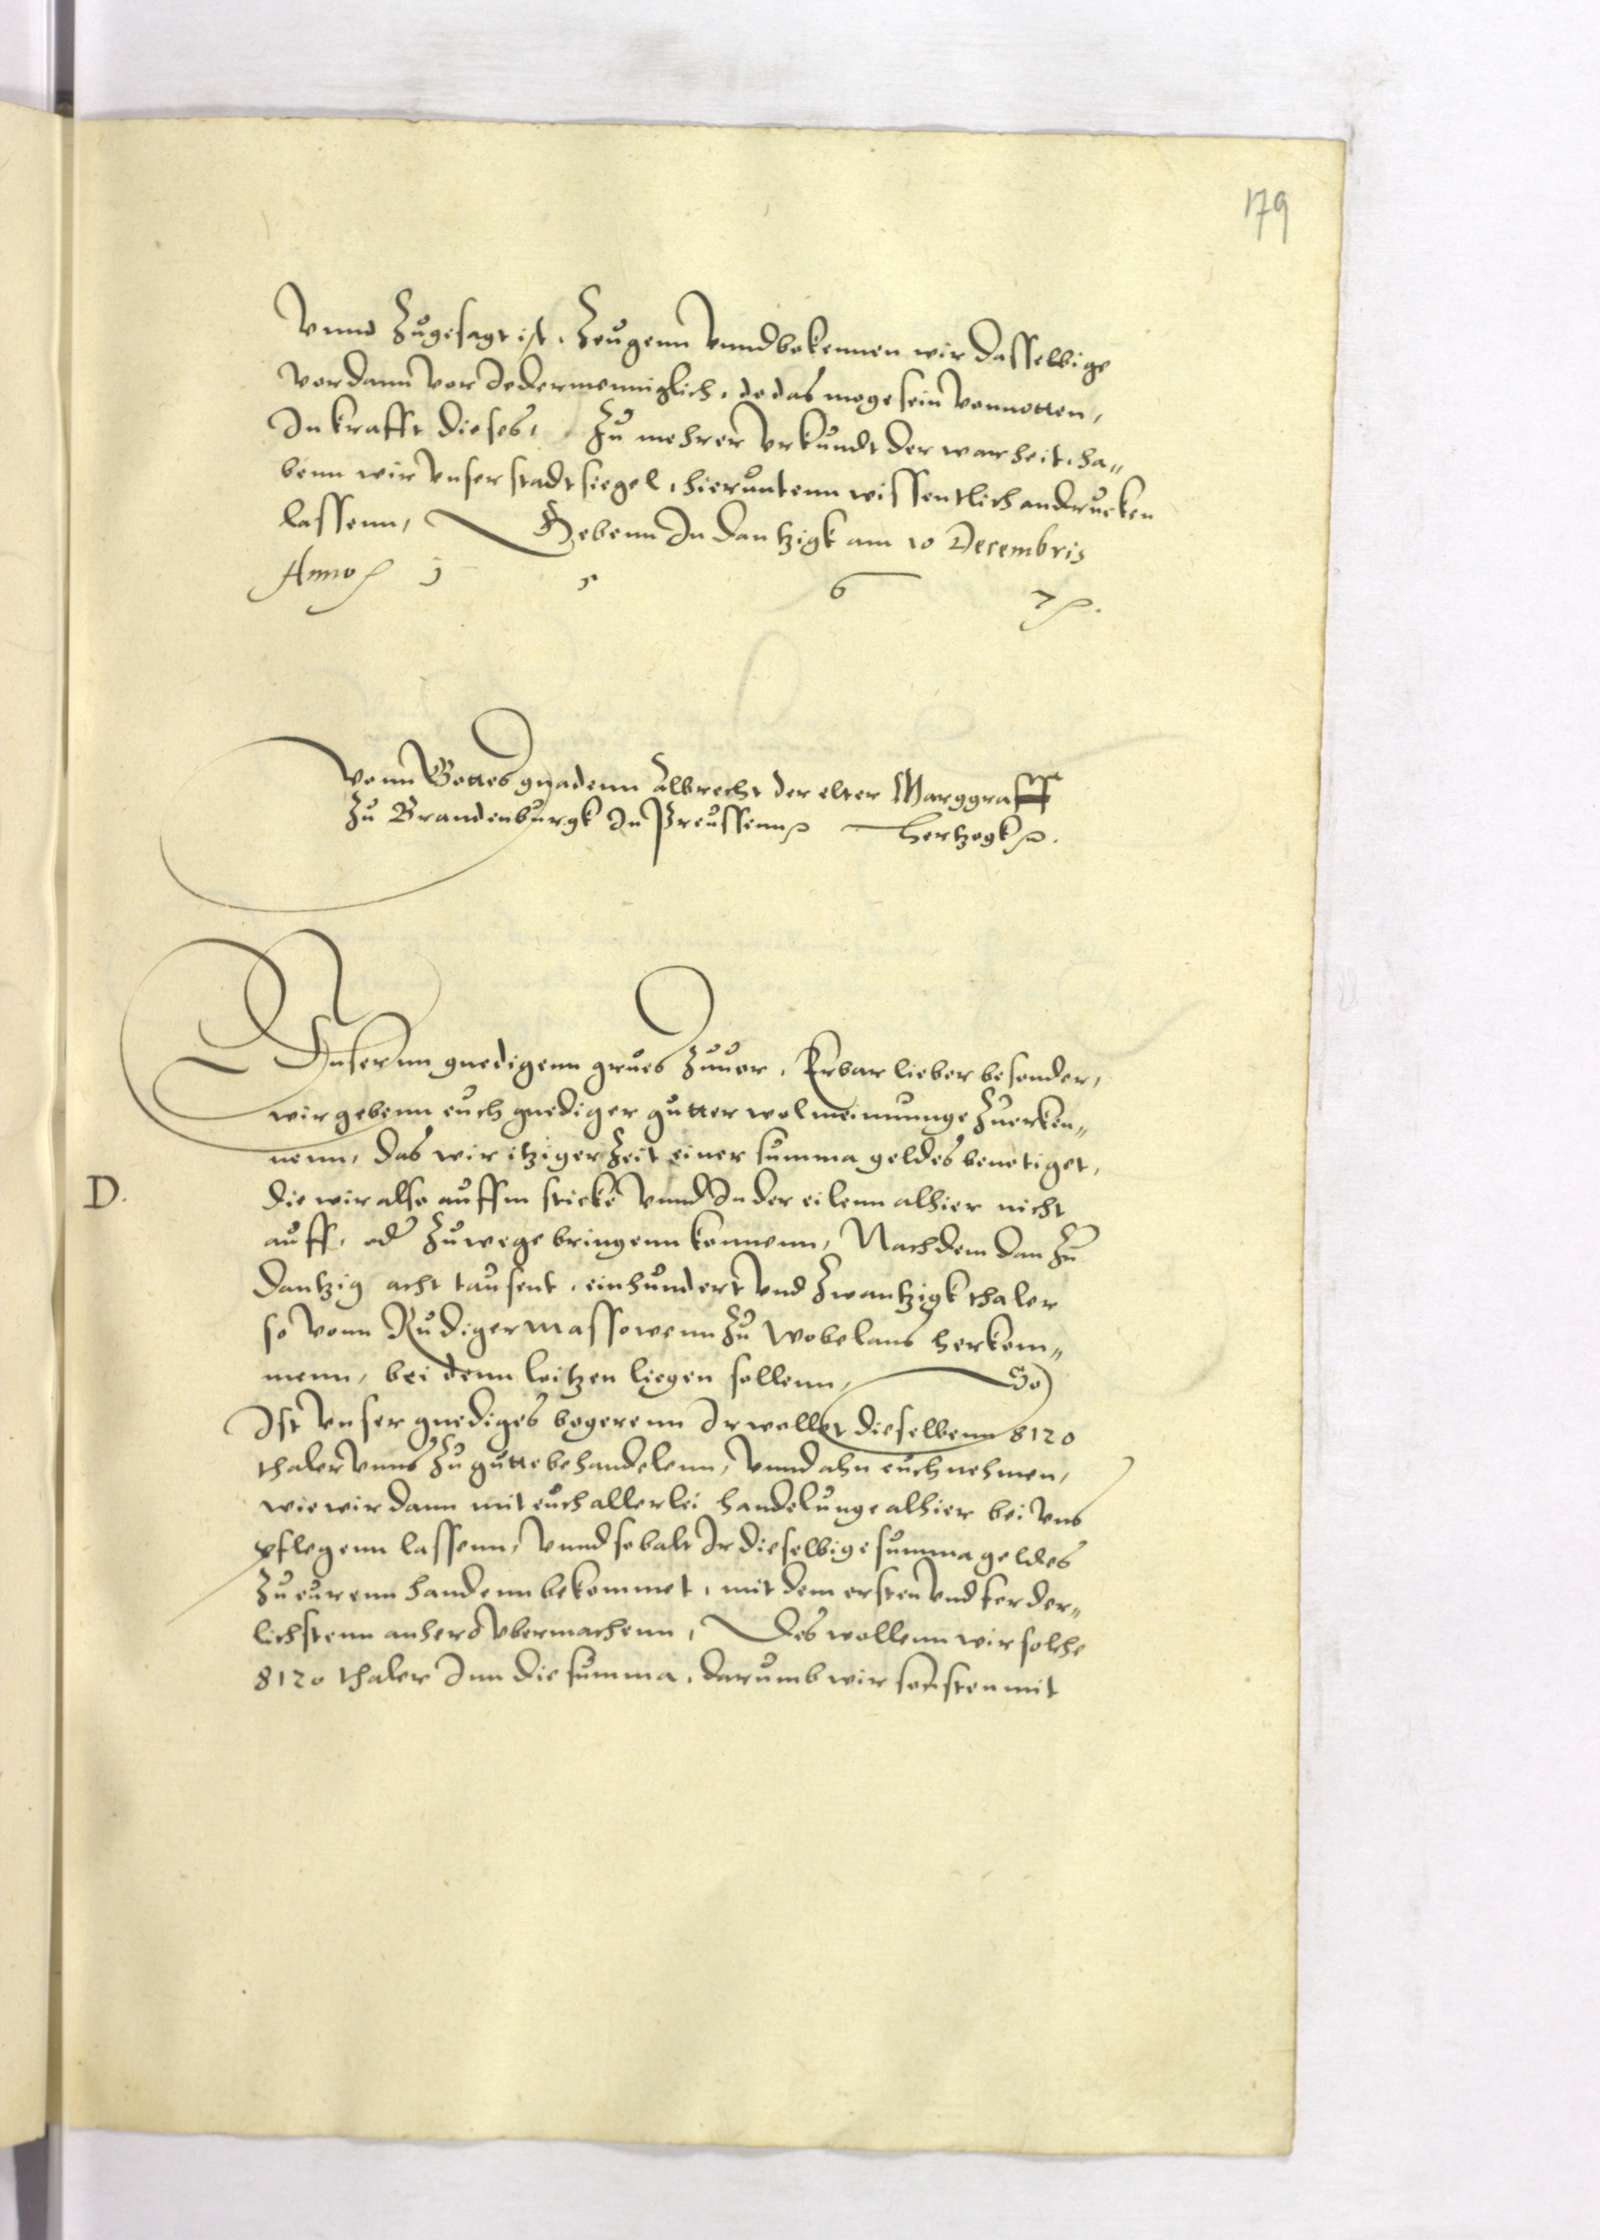 179
Vnnd Zugesagt ist, Zeugenn Vnnd bekennen wir dasselbige
vordann vor Jedermenniglich, do das moge sein vonnotten,
In krafft dieses, Zu mehrer Vrkundt der warheit, ha„
benn wir Vnser stadt siegel, hieruntenn wissentlich andrucken
lassenn, Gebenn In Dantzigk am 10 Decembris
Anno 1 5 6 7
Vonn Gottes gnadenn Albrecht der elter Marggraff
Zu Brandenburgk In Preussenn Hertzogk
Vnsernn gnedigenn grues Zuuor, Erbar lieber besonder,
wir gebenn euch gnediger gutter wolmeinunge Zuerken„
nenn, das wir itziger Zeit einer summa geldes benotiget,
D.
die wir also auffm sticke Vnnd In der eilenn alhier nicht
auff, od Zu wege bringenn konnenn, Nachdem dan Zu
Dantzig acht tausent, einhundert Vnd Zwantzigk thaler
so vonn Rudiger Massowenn Zu Wobelans herkom„
menn, bei denn Loitzen liegen sollenn, So
Ist Vnser gnediges begerenn Ir wollet dieselbenn 8120
thaler Vnns Zu gutte behandelenn, Vnnd ahn euch nehmen,
wie wir dann mit euch allerlei handelunge alhier bei vns
pflegenn lassenn, Vnnd sobalt Ir dieselbige summa geldes
Zu eurenn handenn bekommet, mit dem ersten Vnd forder„
lichstenn anhero Vbermachenn, Des wollenn wir solche
8120 thaler Inn die summa, darumb wir sonsten mit